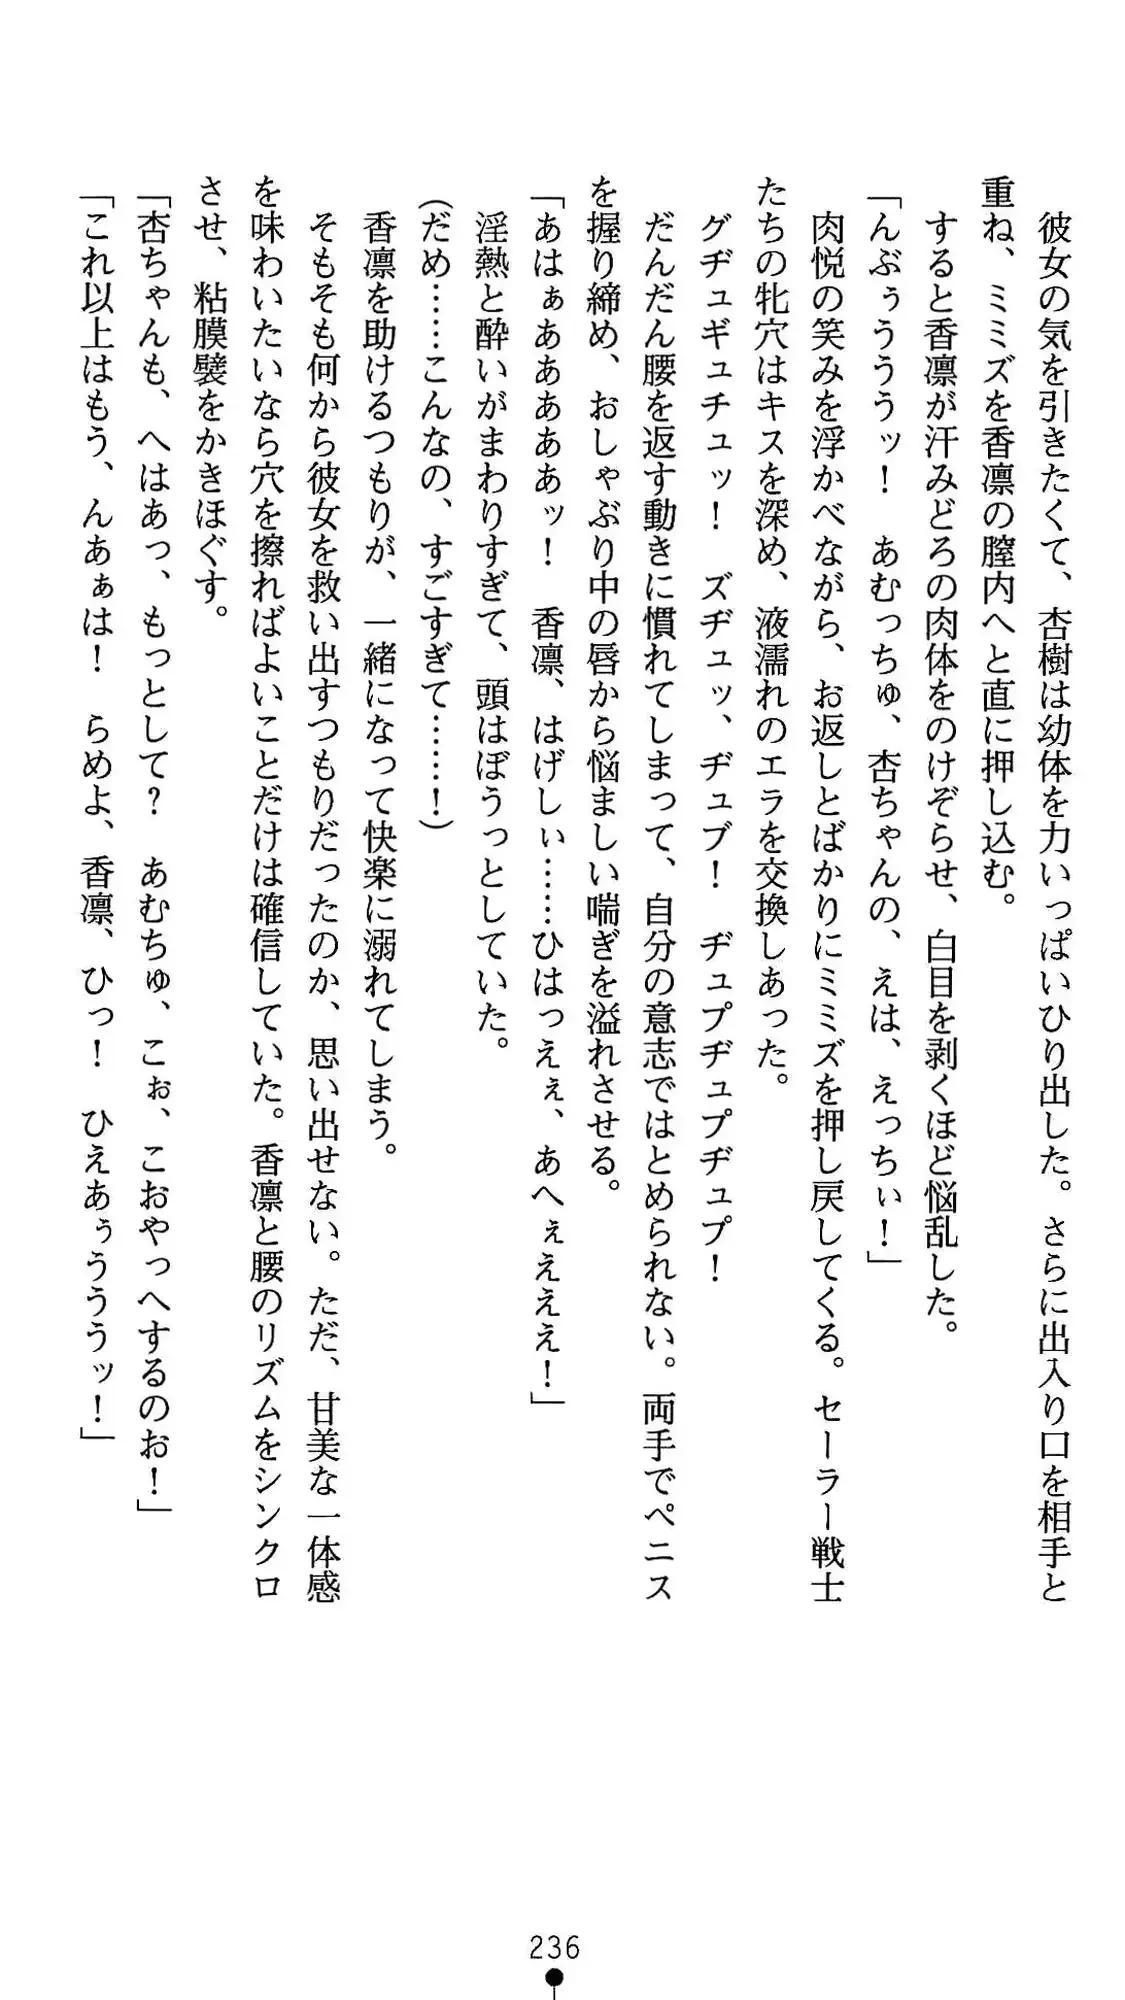 彼女の気を引きたくて、杏樹は幼体を力いっぱいひり出した。さらに出入り口を相手と
重ね、ミミズを香凛の膣内へと直に押し込む。
すると香凛が汗みどろの肉体をのけぞらせ、白目を剥くほど悩乱した。
「んぶぅうううッ！　あむっちゅ、杏ちゃんの、えは、えっちぃ！」
肉悦の笑みを浮かべながら、お返しとばかりにミミズを押し戻してくる。セーラー戦士
たちの牝穴はキスを深め、液濡れのエラを交換しあった。
グヂュギュチュッ！　ズヂュッ、ヂュブ！　ヂュプヂュプヂュプ！
だんだん腰を返す動きに慣れてしまって、自分の意志ではとめられない。両手でペニス
を握り締め、おしゃぶり中の唇から悩ましい喘ぎを溢れさせる。
「あはぁあああああッ！　香凛、はげしぃ……ひはっえぇ、あへぇえええ！」
淫熱と酔いがまわりすぎて、頭はぼうっとしていた。
（だめ……こんなの、すごすぎて……！）
香凛を助けるつもりが、一緒になって快楽に溺れてしまう。
そもそも何から彼女を救い出すつもりだったのか、思い出せない。ただ、甘美な一体感
を味わいたいなら穴を擦ればよいことだけは確信していた。香凛と腰のリズムをシンクロ
させ、粘膜襞をかきほぐす。
「杏ちゃんも、へはあっ、もっとして？　あむちゅ、こぉ、こおやっへするのお！」
「これ以上はもう、んあぁは！　らめよ、香凛、ひっ！　ひえあぅうううッ！」
236